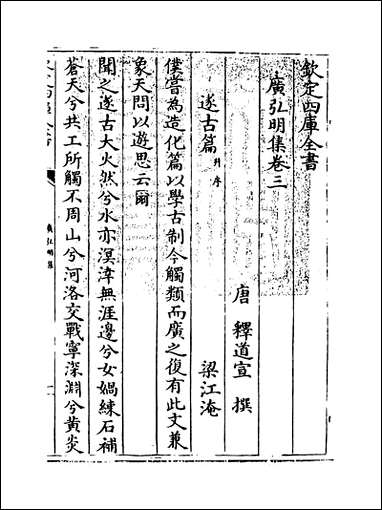 欽定四庫全書
廣弘明集卷三
唐 釋道宣 撰
遂古篇并序 梁江淹
僕嘗為造化篇以學古制今觸類而廣之復有此文兼
象天問以遊思云爾
聞之遂古大火然兮水亦溟涬無涯邊兮女媧練石補
蒼天兮共工所觸不周山兮河洛交戰寧深淵兮黃炎
廣弘明集